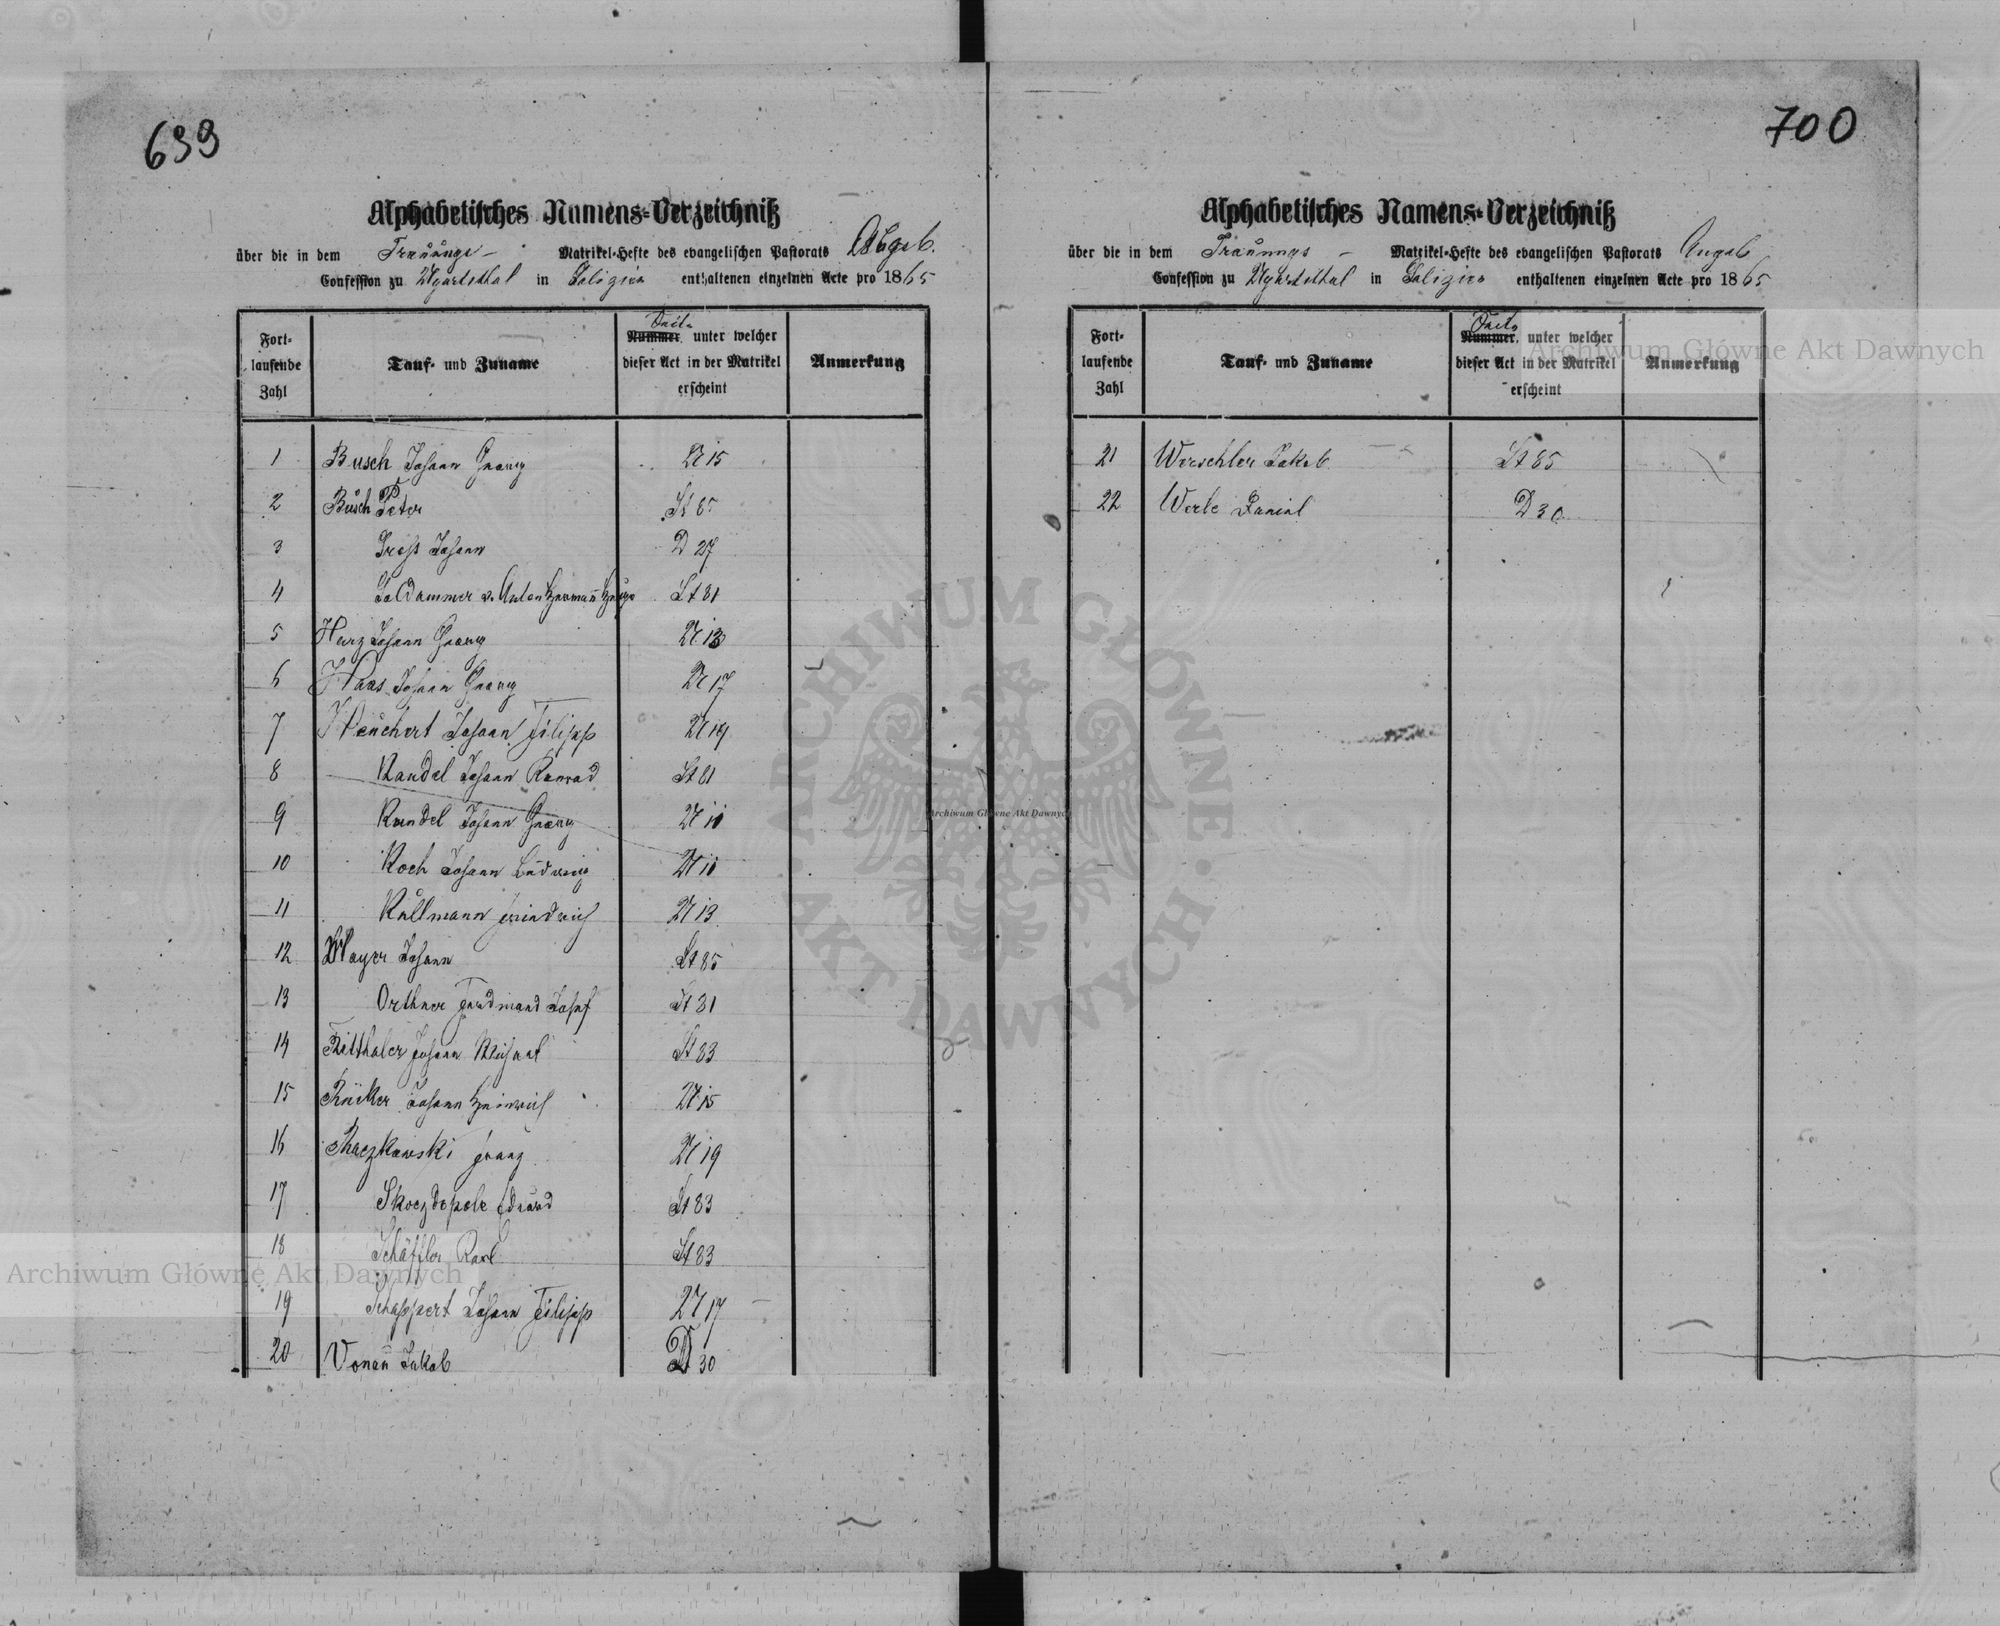 699
Alphabetisches Namens-Verzeichniß
über die in dem Trauungs- Matrikel-Hefte des evangelischen Pastorats Augsb.
Confession zu Ugartsthal in Galizien enthaltenen einzelnen Acte pro 1865
Fort-laufende Zahl
Tauf- und Zuname
Nummer unter welcher dieser Act in der Matrikel erscheint
Anmerkung
1 Busch Johann Georg U 15
2 Busch Peter St 85
3 Gross Johann D 27
4 v. Anton Hermann St 81
5 Herz Johann Georg U 13
6 Haas Johann Georg U 17
7 Heuchert Johann Filipp U 19
8 Kandel Johann Konrad St 81
9 Kandel Johann Georg U 11
10 Koch Johann Ludwig U 11
11 Kullmann Friedrich U 13
12 Mayer Johann St 85
13 Orthner Ferdinand Josef St 81
14 Ritthaler Johann Michael St 83
15 Rücker Johann Heinrich U 15
16 Franz U 19
17 Skoczdopole Eduard St 83
18 Schäffler Karl St 83
19 Schappert Johann Filipp U 17
20 Vonau Jakob D 30
700
Alphabetisches Namens-Verzeichniß
über die in dem Trauungs- Matrikel-Hefte des evangelischen Pastorats Augsb
Confession zu Ugartsthal in Galizien enthaltenen einzelnen Acte pro 1865
Fort-laufende Zahl
Tauf- und Zuname
Nummer unter welcher dieser Act in der Matrikel erscheint
Anmerkung
21 Werschler Jakob St 85
22 Werle Daniel D 30
Archiwum Główne Akt Dawnych
ARCHIWUM GŁÓWNE AKT DAWNYCH
Archiwum Główne Akt Dawnych
Archiwum Główne Akt Dawnych